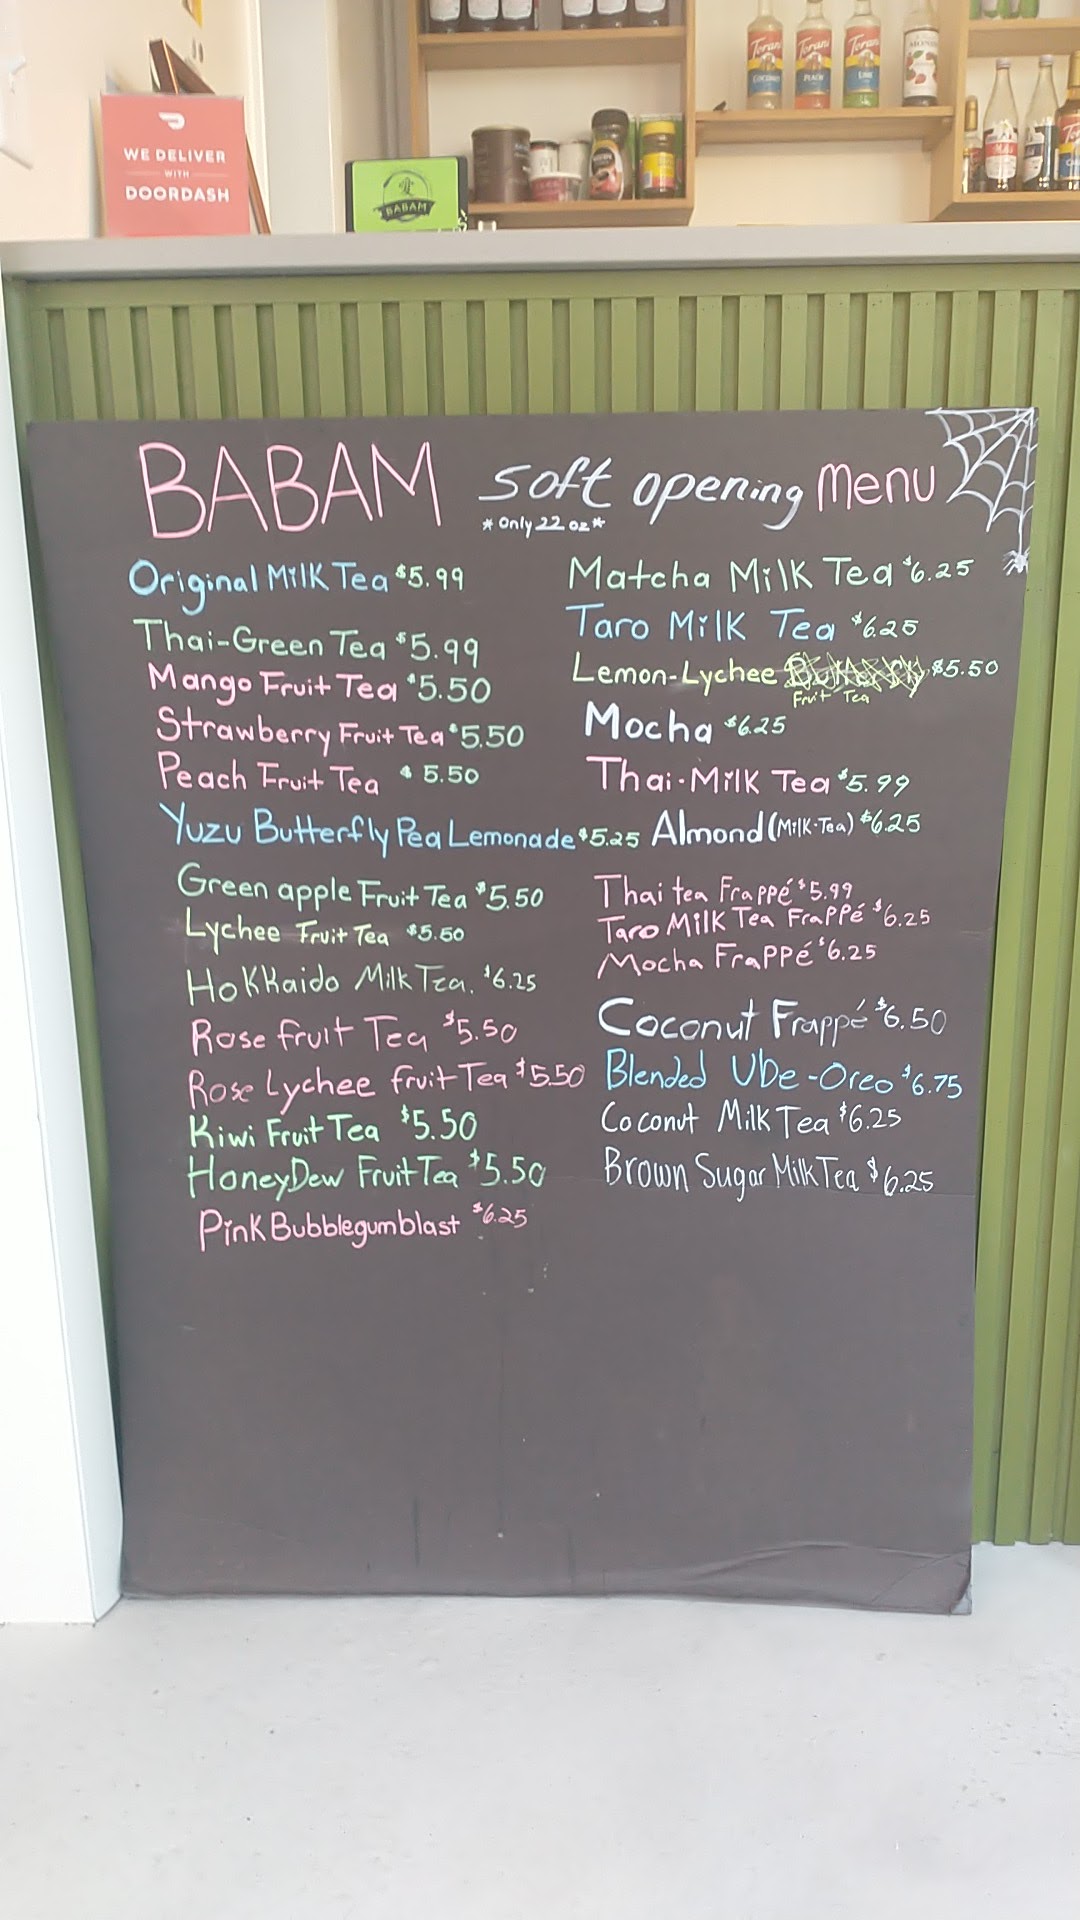 WE DELIVER
WITH
DOORDASH
BABAM
Torani
COCONUT
Torani
PEACH
Torani
LIME
BABAM soft opening menu
*Only 22 oz*
Original Milk Tea $5.99
Thai-Green Tea $5.99
Mango Fruit Tea $5.50
Strawberry Fruit Tea $5.50
Peach Fruit Tea $5.50
Yuzu Butterfly Pea Lemonade $5.25
Green apple Fruit Tea $5.50
Lychee Fruit Tea $5.50
Hokkaido Milk Tea. $6.25
Rose fruit Tea $5.50
Rose Lychee fruit Tea $5.50
Kiwi Fruit Tea $5.50
HoneyDew Fruit Tea $5.50
Pink Bubblegumblast $6.25
Matcha Milk Tea $6.25
Taro Milk Tea $6.25
Lemon-Lychee $5.50
Fruit Tea
Mocha $6.25
Thai-Milk Tea $5.99
Almond (Milk-Tea) $6.25
Thai tea Frappé $5.99
Taro Milk Tea Frappé $6.25
Mocha Frappé $6.25
Coconut Frappé $6.50
Blended Ube-Oreo $6.75
Coconut Milk Tea $6.25
Brown Sugar Milk Tea $6.25